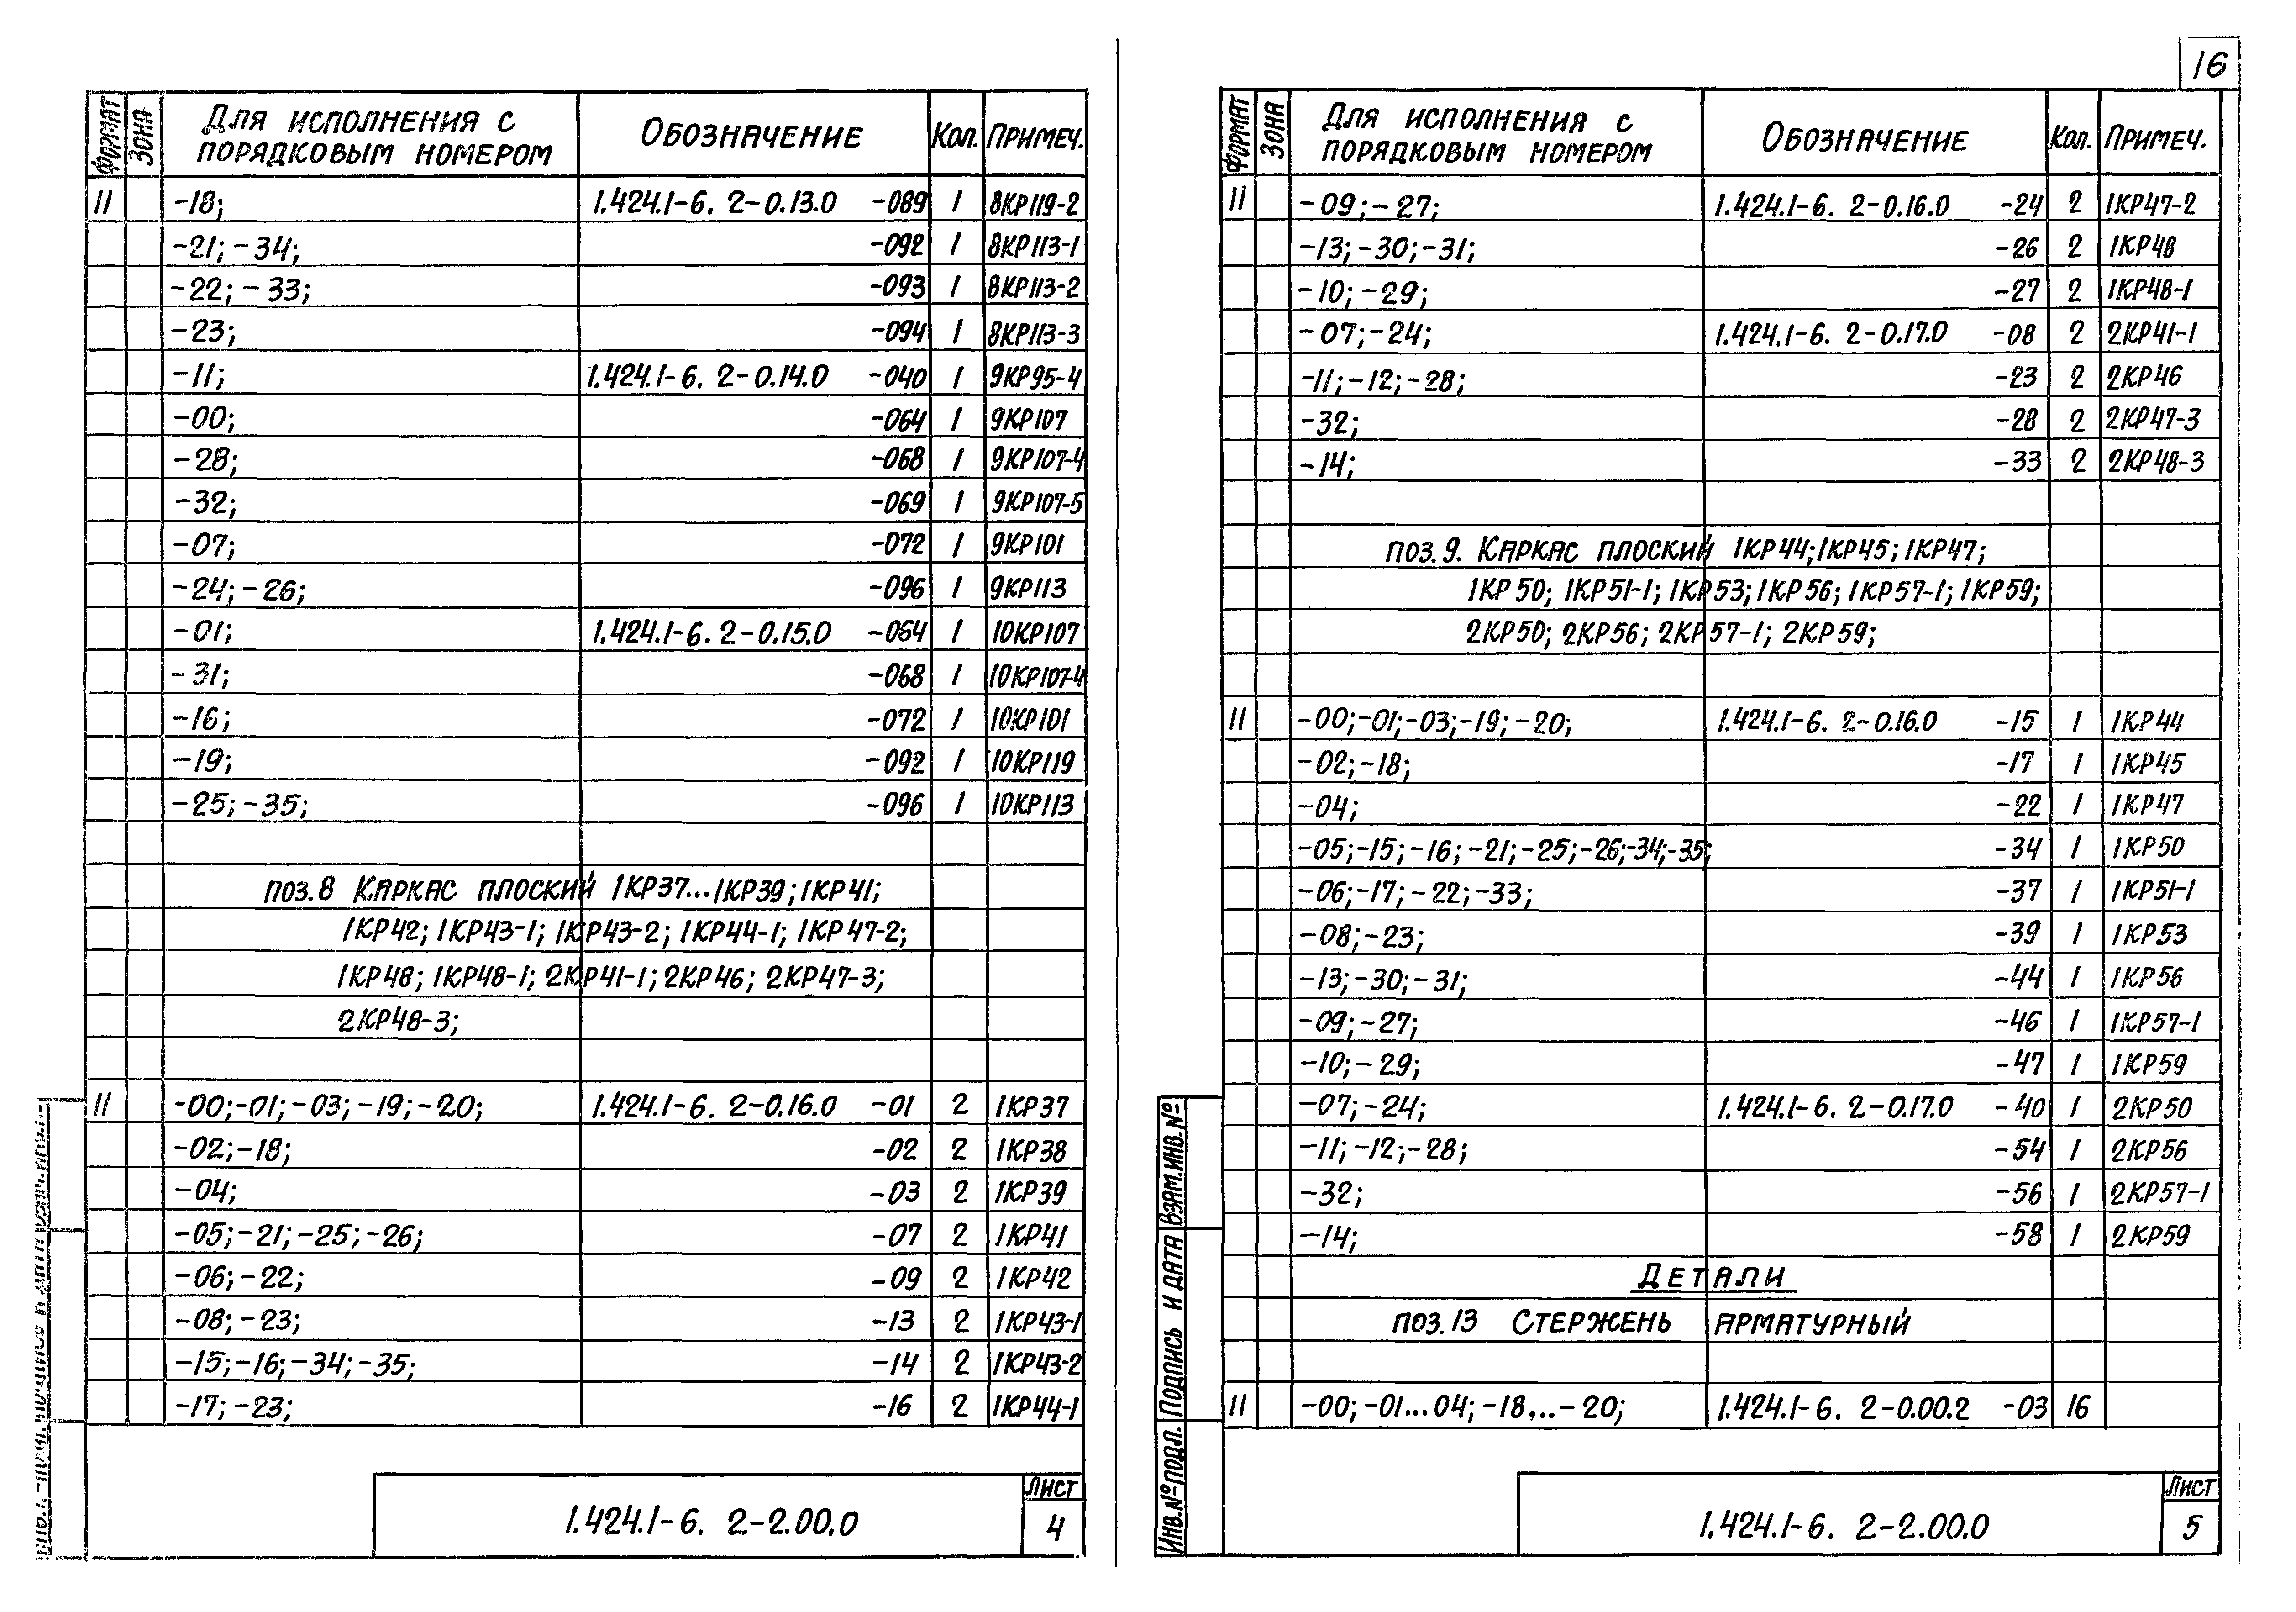 16
ФОРМАТ ЗОНА Для исполнения с порядковым номером Обозначение Кол. Примеч.
11 -18; 1.424.1-6. 2-0.13.0 -089 1 8КР119-2
-21; -34; -092 1 8КР113-1
-22; -33; -093 1 8КР113-2
-23; -094 1 8КР113-3
-11; 1.424.1-6. 2-0.14.0 -040 1 9КР95-4
-00; -064 1 9КР107
-28; -068 1 9КР107-4
-32; -069 1 9КР107-5
-07; -072 1 9КР101
-24; -26; -096 1 9КР113
-01; 1.424.1-6. 2-0.15.0 -064 1 10КР107
-31; -068 1 10КР107-4
-16; -072 1 10КР101
-19; -092 1 10КР119
-25; -35; -096 1 10КР113
поз.8 Каркас плоский 1КР37...1КР39; 1КР41;
1КР42; 1КР43-1; 1КР43-2; 1КР44-1; 1КР47-2;
1КР48; 1КР48-1; 2КР41-1; 2КР46; 2КР47-3;
2КР48-3;
11 -00; -01; -03; -19; -20; 1.424.1-6. 2-0.16.0 -01 2 1КР37
-02; -18; -02 2 1КР38
-04; -03 2 1КР39
-05; -21; -25; -26; -07 2 1КР41
-06; -22; -09 2 1КР42
-08; -23; -13 2 1КР43-1
-15; -16; -34; -35; -14 2 1КР43-2
-17; -23; -16 2 1КР44-1
1.424.1-6. 2-2.00.0
Лист
4
ФОРМАТ ЗОНА Для исполнения с порядковым номером Обозначение Кол. Примеч.
11 -09; -27; 1.424.1-6. 2-0.16.0 -24 2 1КР47-2
-13; -30; -31; -26 2 1КР48
-10; -29; -27 2 1КР48-1
-07; -24; 1.424.1-6. 2-0.17.0 -08 2 2КР41-1
-11; -12; -28; -23 2 2КР46
-32; -28 2 2КР47-3
-14; -33 2 2КР48-3
поз.9. Каркас плоский 1КР44; 1КР45; 1КР47;
1КР50; 1КР51-1; 1КР53; 1КР56; 1КР57-1; 1КР59;
2КР50; 2КР56; 2КР57-1; 2КР59;
11 -00; -01; -03; -19; -20; 1.424.1-6. 2-0.16.0 -15 1 1КР44
-02; -18; -17 1 1КР45
-04; -22 1 1КР47
-05; -15; -16; -21; -25; -26; -34; -35; -34 1 1КР50
-06; -17; -22; -33; -37 1 1КР51-1
-08; -23; -39 1 1КР53
-13; -30; -31; -44 1 1КР56
-09; -27; -46 1 1КР57-1
-10; -29; -47 1 1КР59
-07; -24; 1.424.1-6. 2-0.17.0 -40 1 2КР50
-11; -12; -28; -54 1 2КР56
-32; -56 1 2КР57-1
-14; -58 1 2КР59
Детали
поз.13 Стержень арматурный
11 -00; -01...04; -18...-20; 1.424.1-6. 2-0.00.2 -03 16
Инв.№подл. Подпись и дата Взам.инв.№
1.424.1-6. 2-2.00.0
Лист
5